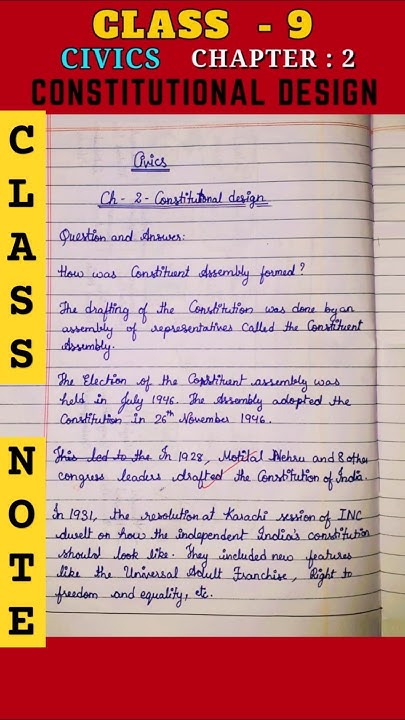 CLASS - 9
CIVICS CHAPTER : 2
CONSTITUTIONAL DESIGN
CLASS NOTE
Civics
Ch - 2 - Constitutional design
Question and Answer:
How was Constituent Assembly formed?
The drafting of the Constitution was done by an
assembly of representatives called the Constituent
Assembly.
The Election of the Constituent assembly was
held in July 1946. The Assembly adopted the
Constitution in 26th November 1946.
This led to the In 1928, Motilal Nehru and 8 other
congress leaders drafted the Constitution of India.
In 1931, the resolution at Karachi session of INC
dwelt on how the independent India's constitution
should look like. They included new features
like the Universal Adult Franchise, Right to
freedom and equality, etc.